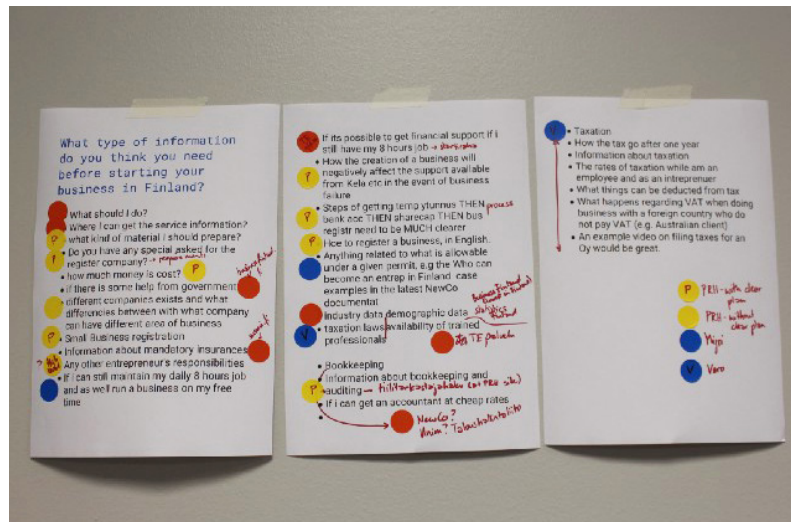 What type of information
do you think you need
before starting your
business in Finland?
What should I do?
Where I can get the service information?
P • what kind of material I should prepare?
• Do you have any special asked for the
register company?
• how much money is cost? P
• if there is some help from government
different companies exists and what
differencies between with what company
can have different area of business
P • Small Business registration
• Information about mandatory insurances
Any other entrepreneur's responsibilities
• If I can still maintain my daily 8 hours job
and as well run a business on my free
time
• If its possible to get financial support if i
still have my 8 hours job → startti
• How the creation of a business will
P negatively affect the support available
from Kela etc in the event of business
failure
• Steps of getting temp ytunnus THEN process
P bank acc THEN sharecap THEN bus
registr need to be MUCH clearer
P • How to register a business, in English.
• Anything related to what is allowable
under a given permit, e.g the Who can
become an entrep in Finland case
examples in the latest NewCo
documentat
industry data demographic data
statistics
V • taxation laws availability of trained
professionals TE palvelu
• Bookkeeping
• Information about bookkeeping and
P auditing →
• If i can get an accountant at cheap rates
•
NewCo?
V • Taxation
• How the tax go after one year
• Information about taxation
• The rates of taxation while am an
employee and as an intreprenuer
• What things can be deducted from tax
• What happens regarding VAT when doing
business with a foreign country who do
not pay VAT (e.g. Australian client)
• An example video on filing taxes for an
Oy would be great.
P PRH-with clear
plan
PRH-without
clear plan
V Vero